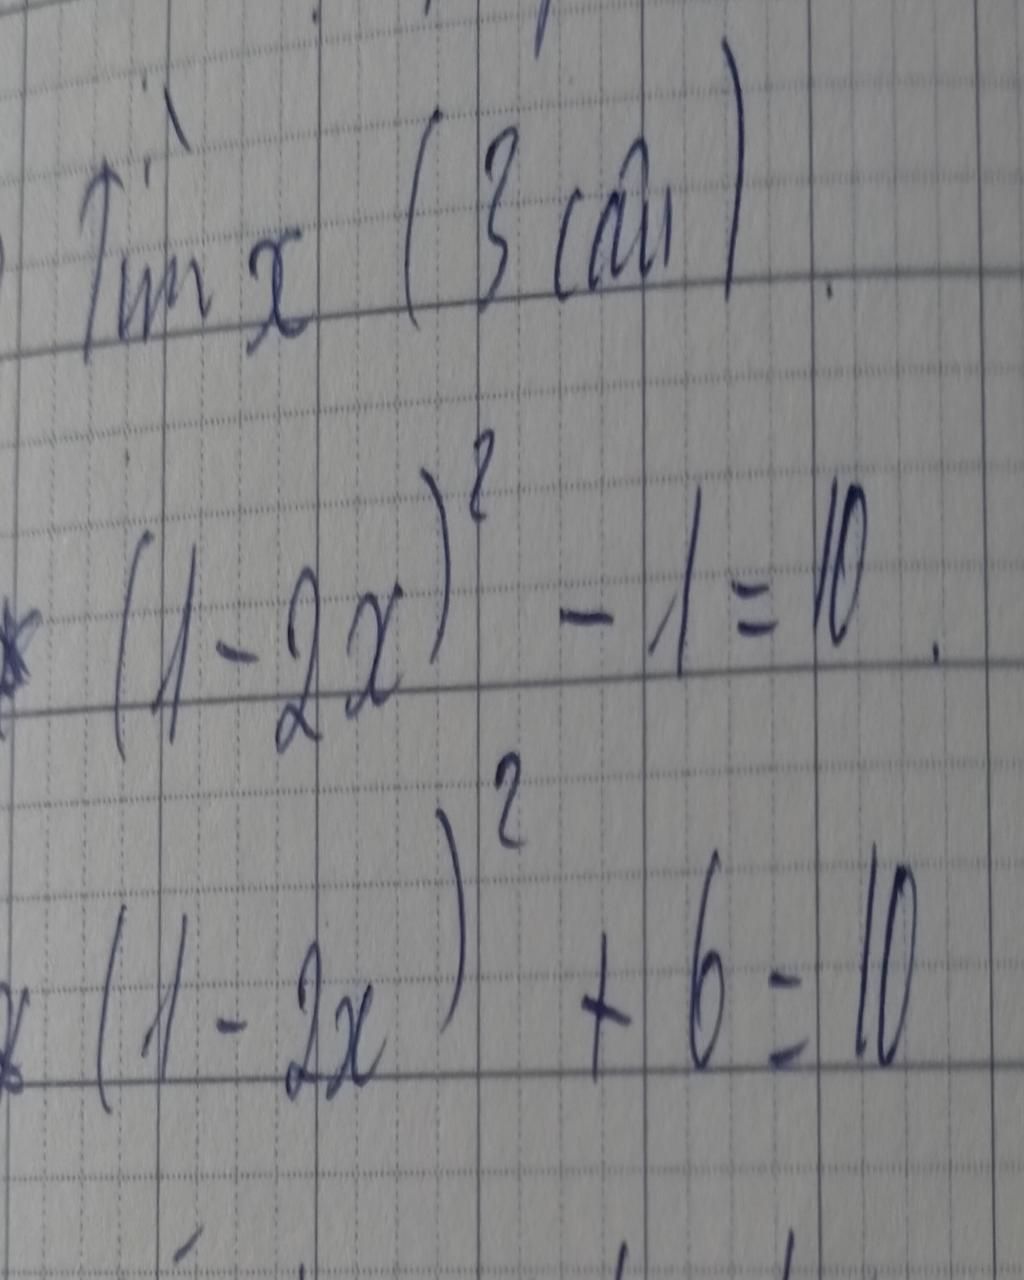 Tìm x (3 câu)
* (1-2x)² - 1 = 10.
* (1-2x)² + 6 = 10